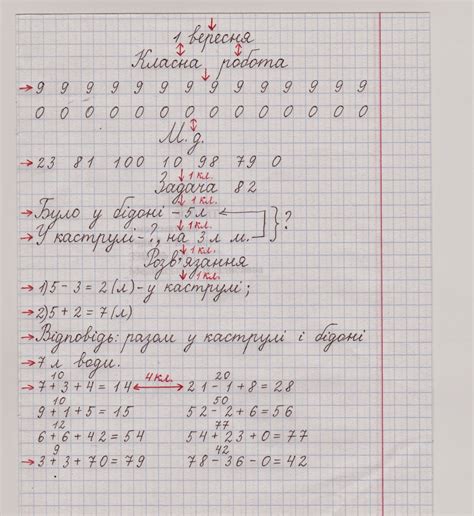 1 вересня
Класна робота
9 9 9 9 9 9 9 9 9 9 9 9 9 9
0 0 0 0 0 0 0 0 0 0 0 0 0 0
М. д.
23 81 100 10 98 79 0
1 кл.
Задача 82
1 кл.
Було у бідоні – 5 л
1 кл.
У каструлі – ?, на 3 л м. ?
1 кл.
Розв'язання
1 кл.
1) 5 - 3 = 2 (л) - у каструлі;
2) 5 + 2 = 7 (л)
Відповідь: разом у каструлі і бідоні
7 л води.
10 4 кл. 20
7 + 3 + 4 = 14 21 - 1 + 8 = 28
10 50
9 + 1 + 5 = 15 52 - 2 + 6 = 56
12 77
6 + 6 + 42 = 54 54 + 23 + 0 = 77
9 42
3 + 3 + 70 = 79 78 - 36 - 0 = 42